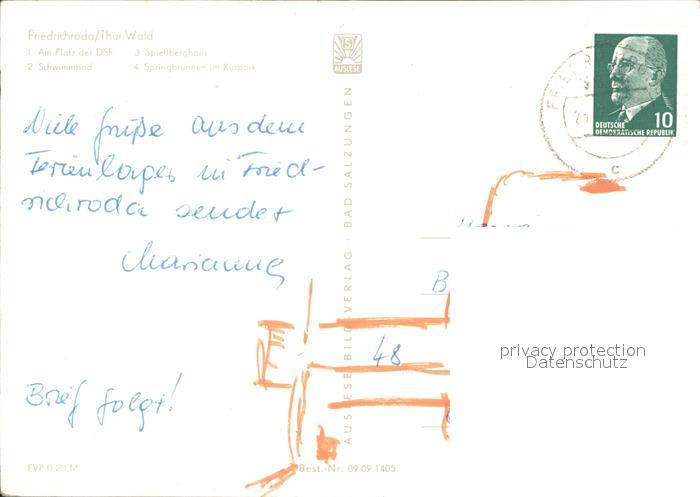 Friedrichroda/Thür. Wald
1 Am Platz der DSF 3 Spießberghaus
2 Schwimmbad 4 Springbrunnen im Kurpark
AUSLESE
DEUTSCHE
DEMOKRATISCHE REPUBLIK
10
c
Viele Grüße aus dem
Ferienlager in Fried-
richroda sendet
Marianne
B
48
privacy protection
Datenschutz
Brief folgt!
AUSLESE BILD VERLAG · BAD SALZUNGEN
EVP 0.20 M
Best.-Nr. 09 09 1405